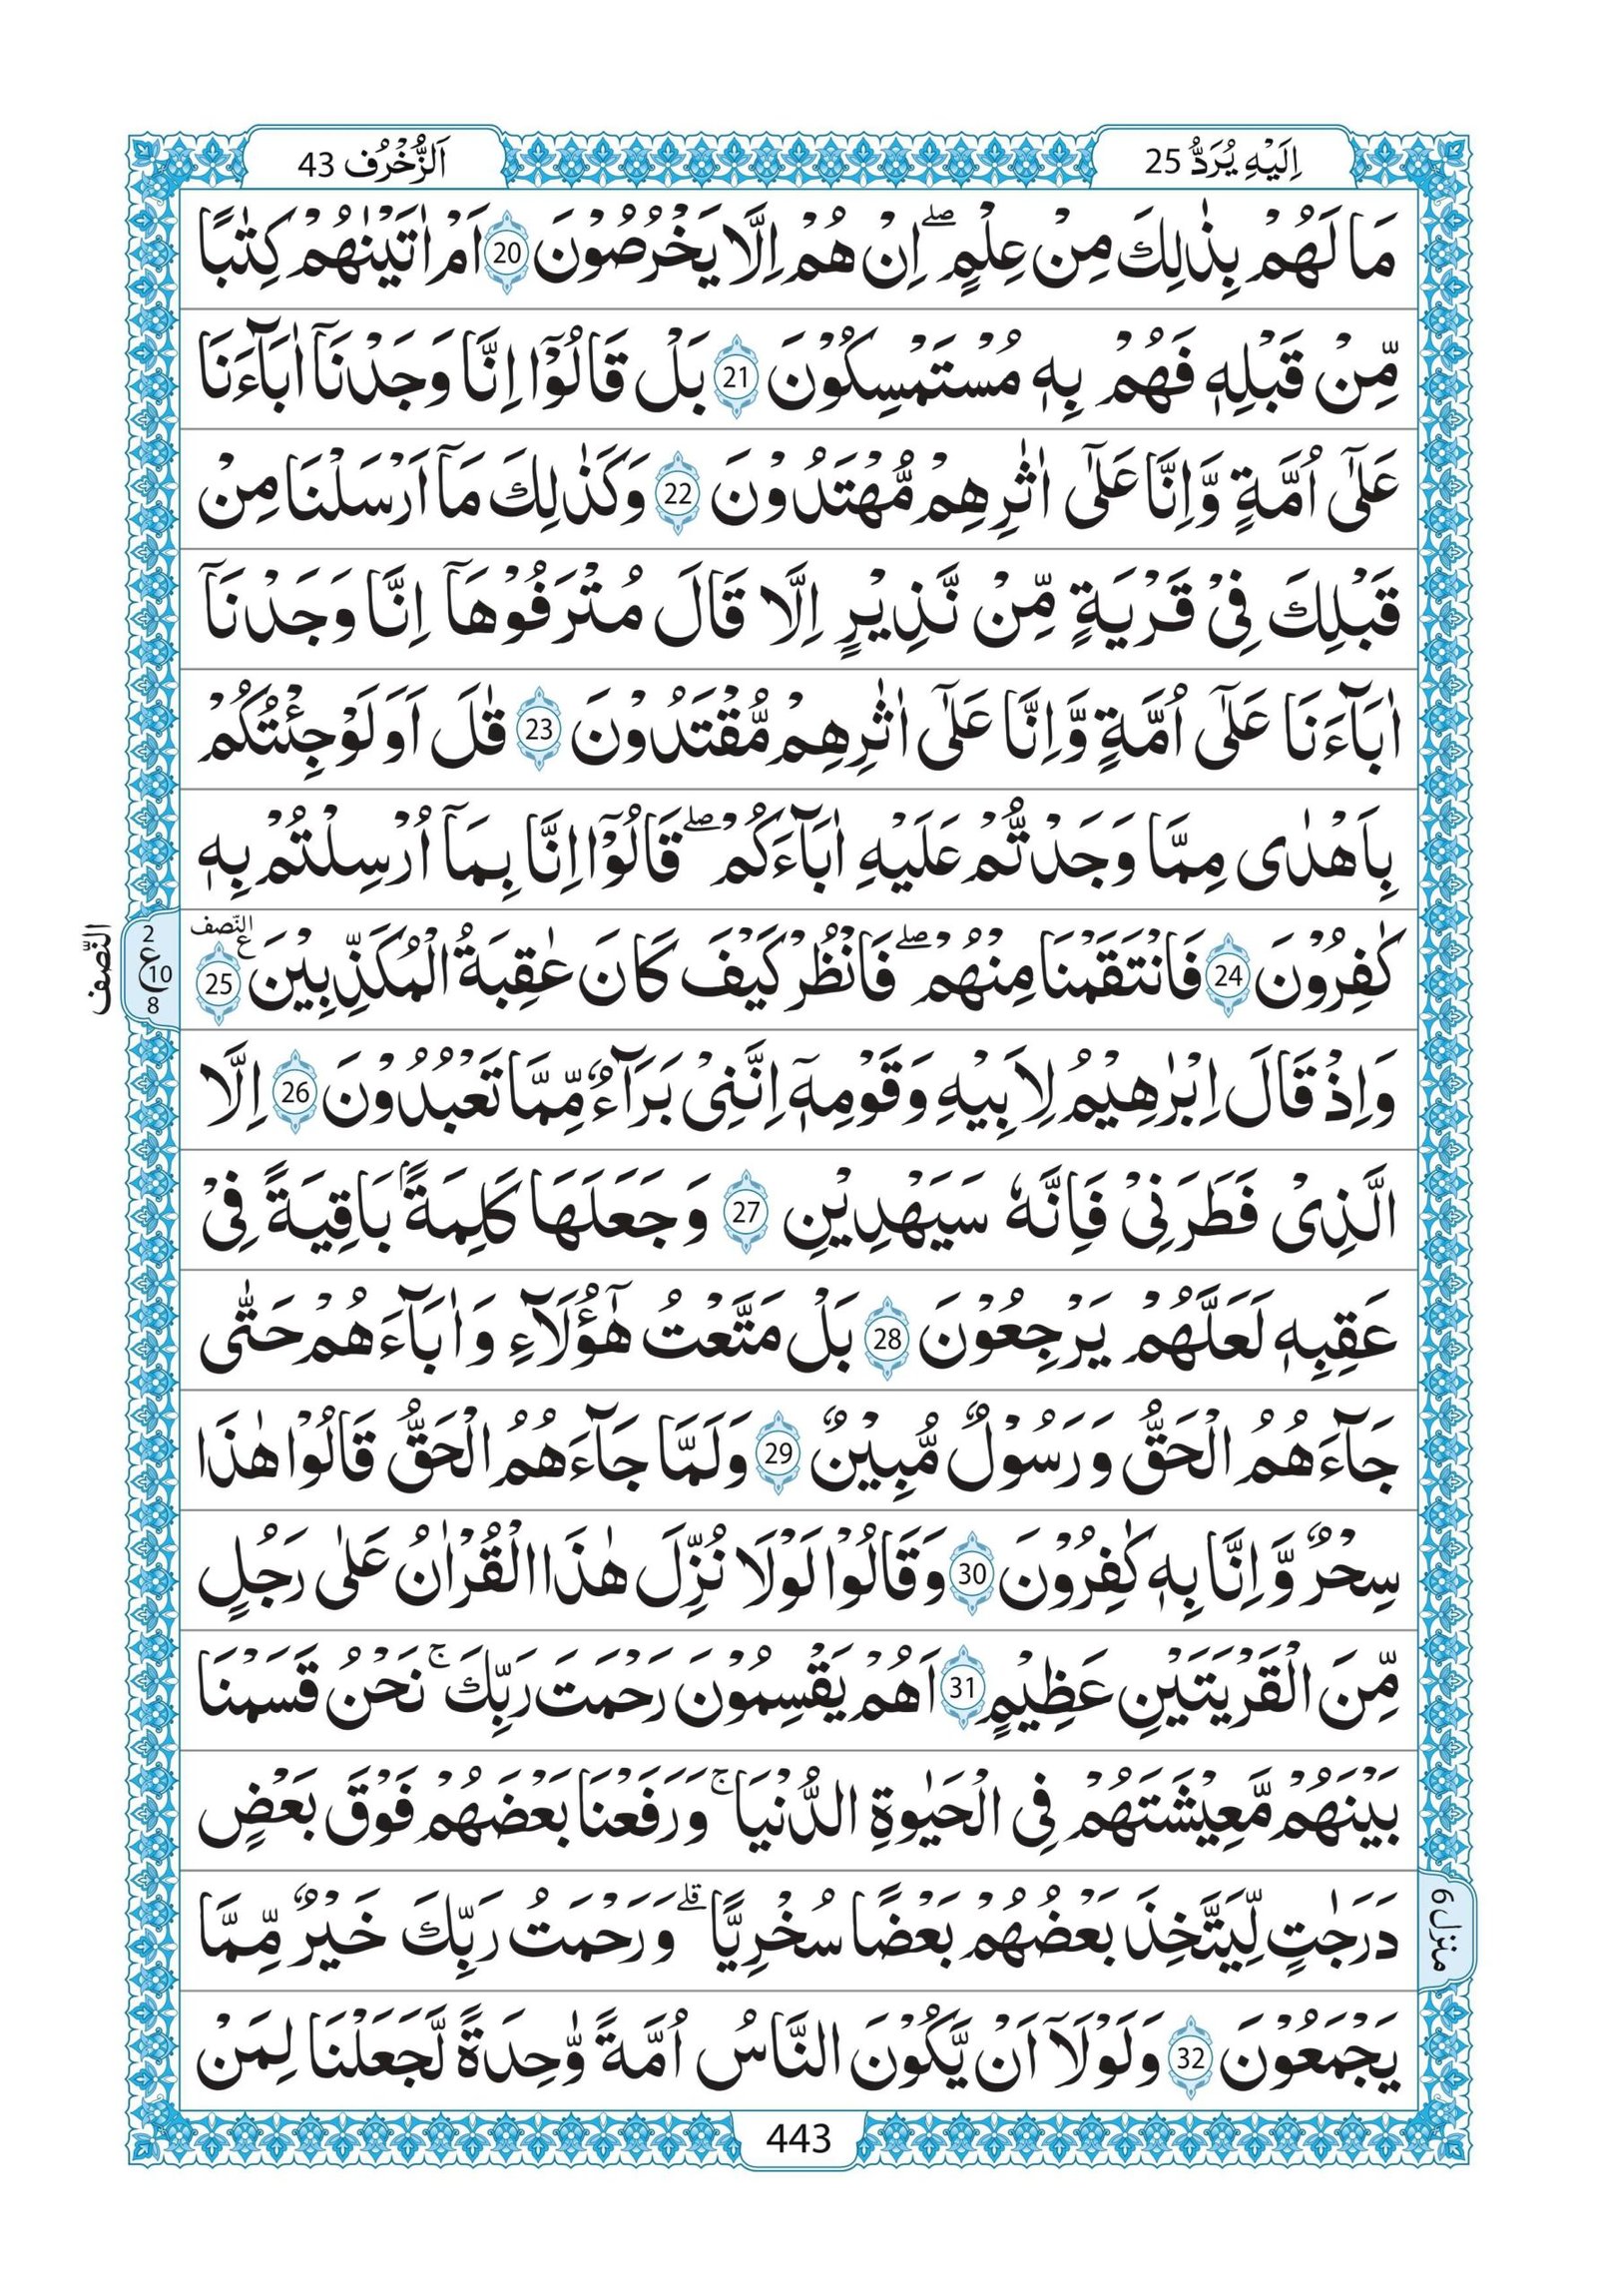 اِلَیْهِ یُرَدُّ 25
اَلزُّخْرُف 43
مَا لَهُمْ بِذٰلِكَ مِنْ عِلْمٍ ۖ اِنْ هُمْ اِلَّا یَخْرُصُوْنَ 20 اَمْ اٰتَیْنٰهُمْ كِتٰبًا
مِّنْ قَبْلِهٖ فَهُمْ بِهٖ مُسْتَمْسِكُوْنَ 21 بَلْ قَالُوْۤا اِنَّا وَجَدْنَاۤ اٰبَآءَنَا
عَلٰۤی اُمَّةٍ وَّاِنَّا عَلٰۤی اٰثٰرِهِمْ مُّهْتَدُوْنَ 22 وَكَذٰلِكَ مَاۤ اَرْسَلْنَا مِنْ
قَبْلِكَ فِیْ قَرْیَةٍ مِّنْ نَّذِیْرٍ اِلَّا قَالَ مُتْرَفُوْهَاۤ اِنَّا وَجَدْنَاۤ
اٰبَآءَنَا عَلٰۤی اُمَّةٍ وَّاِنَّا عَلٰۤی اٰثٰرِهِمْ مُّقْتَدُوْنَ 23 قٰلَ اَوَلَوْ جِئْتُكُمْ
بِاَهْدٰی مِمَّا وَجَدْتُّمْ عَلَیْهِ اٰبَآءَكُمْ ۖ قَالُوْۤا اِنَّا بِمَاۤ اُرْسِلْتُمْ بِهٖ
كٰفِرُوْنَ 24 فَانْتَقَمْنَا مِنْهُمْ ۖ فَانْظُرْ كَیْفَ كَانَ عٰقِبَةُ الْمُكَذِّبِیْنَ 25 النّصف ع
2 ع 10 8
النّصف
وَاِذْ قَالَ اِبْرٰهِیْمُ لِاَبِیْهِ وَقَوْمِهٖۤ اِنَّنِیْ بَرَآءٌ مِّمَّا تَعْبُدُوْنَ 26 اِلَّا
الَّذِیْ فَطَرَنِیْ فَاِنَّهٗ سَیَهْدِیْنِ 27 وَجَعَلَهَا كَلِمَةًۢ بَاقِیَةً فِیْ
عَقِبِهٖ لَعَلَّهُمْ یَرْجِعُوْنَ 28 بَلْ مَتَّعْتُ هٰۤؤُلَآءِ وَاٰبَآءَهُمْ حَتّٰی
جَآءَهُمُ الْحَقُّ وَرَسُوْلٌ مُّبِیْنٌ 29 وَلَمَّا جَآءَهُمُ الْحَقُّ قَالُوْا هٰذَا
سِحْرٌ وَّاِنَّا بِهٖ كٰفِرُوْنَ 30 وَقَالُوْا لَوْلَا نُزِّلَ هٰذَا الْقُرْاٰنُ عَلٰی رَجُلٍ
مِّنَ الْقَرْیَتَیْنِ عَظِیْمٍ 31 اَهُمْ یَقْسِمُوْنَ رَحْمَتَ رَبِّكَ ۚ نَحْنُ قَسَمْنَا
بَیْنَهُمْ مَّعِیْشَتَهُمْ فِی الْحَیٰوةِ الدُّنْیَا ۚ وَرَفَعْنَا بَعْضَهُمْ فَوْقَ بَعْضٍ
دَرَجٰتٍ لِّیَتَّخِذَ بَعْضُهُمْ بَعْضًا سُخْرِیًّا ۗ وَرَحْمَتُ رَبِّكَ خَیْرٌ مِّمَّا
منزل 6
یَجْمَعُوْنَ 32 وَلَوْلَاۤ اَنْ یَّكُوْنَ النَّاسُ اُمَّةً وّٰحِدَةً لَّجَعَلْنَا لِمَنْ
443